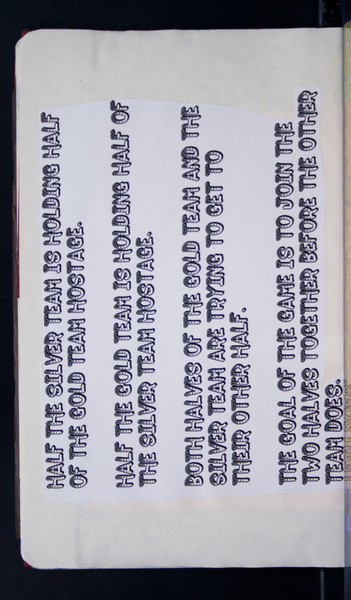 HALF THE SILVER TEAM IS HOLDING HALF
OF THE GOLD TEAM HOSTAGE.
HALF THE GOLD TEAM IS HOLDING HALF OF
THE SILVER TEAM HOSTAGE.
BOTH HALVES OF THE GOLD TEAM AND THE
SILVER TEAM ARE TRYING TO GET TO
THEIR OTHER HALF.
THE GOAL OF THE GAME IS TO JOIN THE
TWO HALVES TOGETHER BEFORE THE OTHER
TEAM DOES.